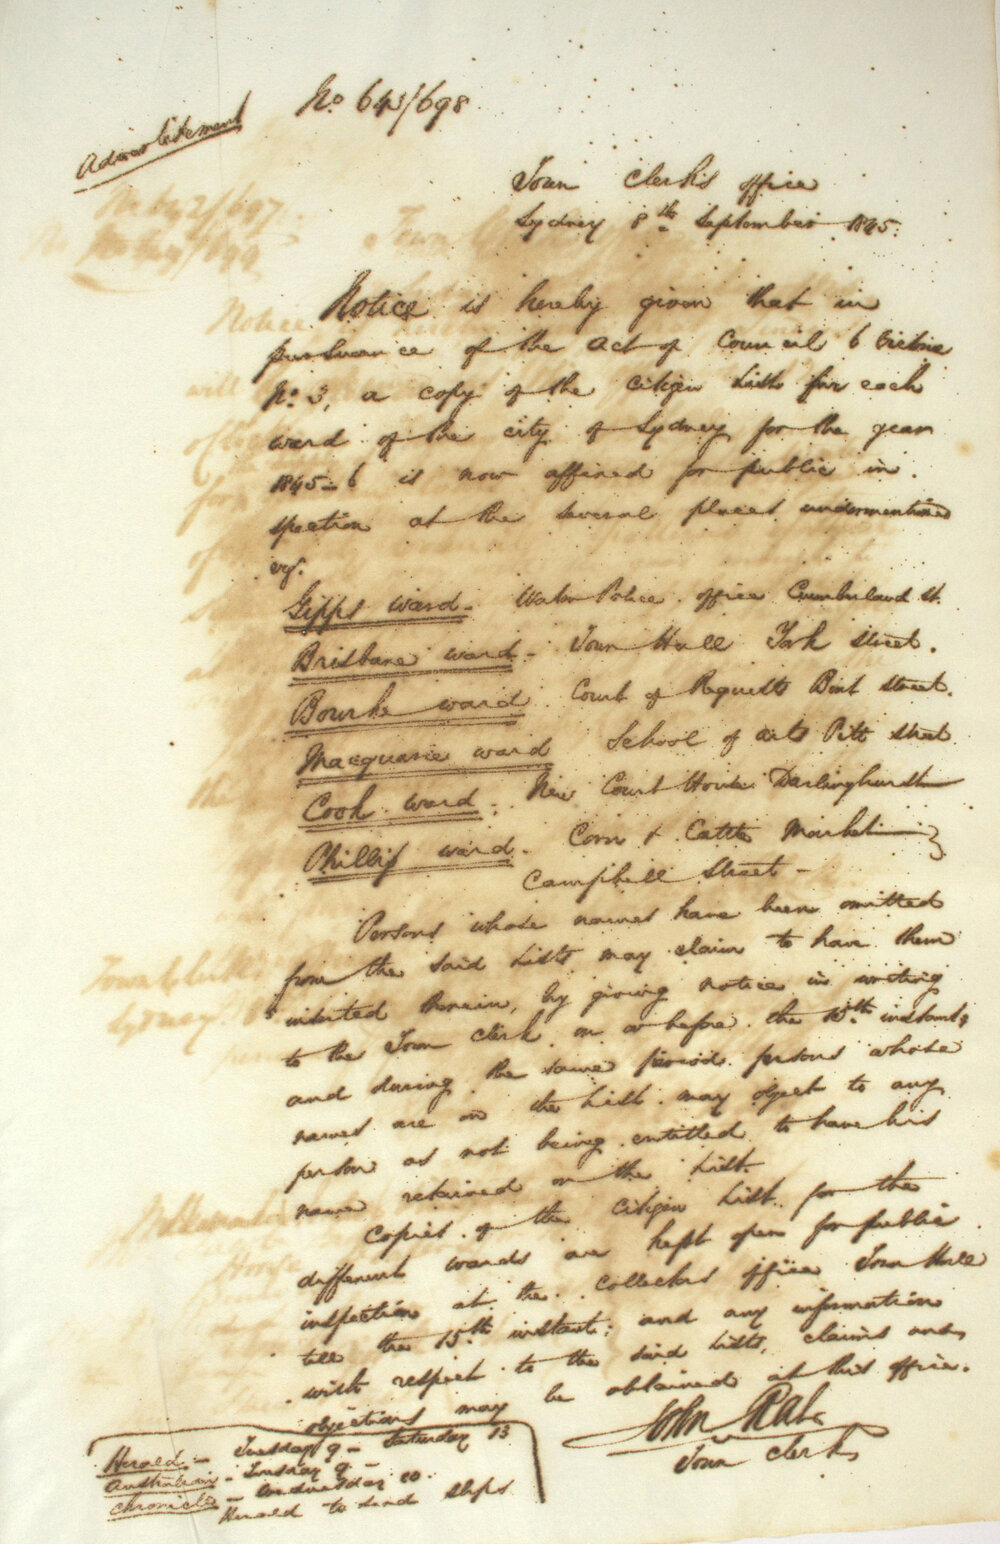 Advertisement
No 643/698
Town Clerk's office
Sydney 8th September 1845.
Notice is hereby given that in
pursuance of the Act of Council 6 Victoria
No 3, a copy of the Citizen Lists for each
ward of the city of Sydney for the year
1845-6 is now affixed for public in
spection at the several places undermentioned
viz.
Gipps ward - Water Police office Cumberland St.
Brisbane ward - Town Hall York Street.
Bourke ward Court of Requests Bent Street.
Macquarie ward School of Arts Pitt Street
Cook ward - New Court House Darlinghurst
Phillip ward - Corn & Cattle Market
Campbell Street -
Persons whose names have been omitted
from the said Lists may claim to have them
inserted therein, by giving notice in writing
to the Town Clerk on or before the 15th instant,
and during the same period persons whose
names are on the List may object to any
person as not being entitled to have his
name retained on the List.
Copies of the Citizen List for the
different wards are kept open for public
inspection at the Collectors office Town Hall
till the 15th instant; and any information
with respect to the said Lists, claims and
objections may be obtained at this office.
John Rae
Town Clerk
Herald - Tuesday 9 - Saturday 13
Australian - Tuesday 9 -
Chronicle - Wednesday 10.
Herald to send slips